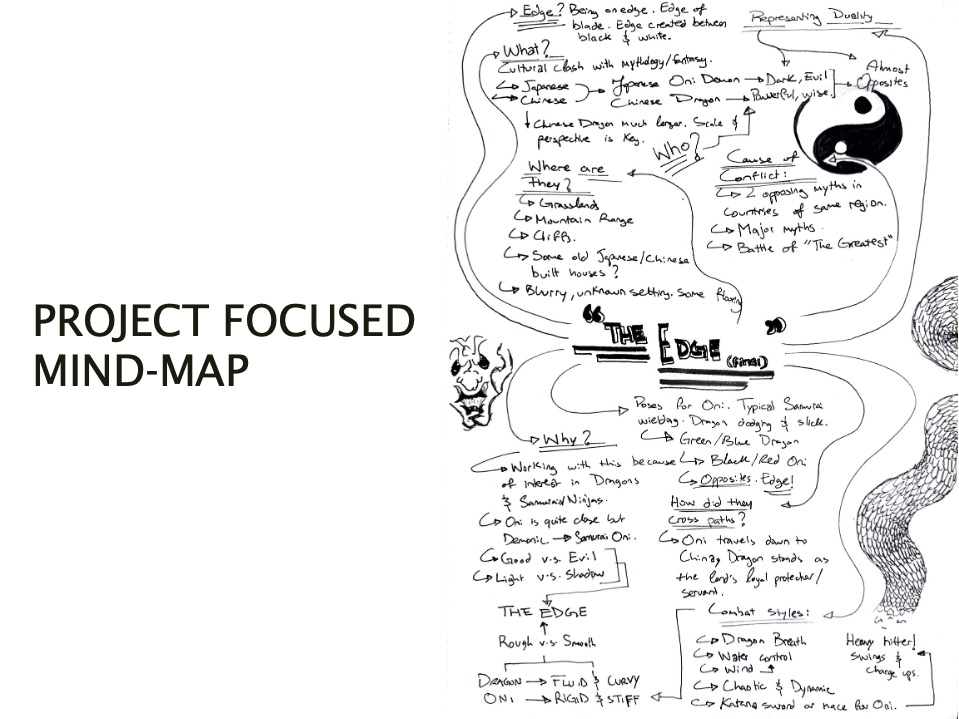 PROJECT FOCUSED
MIND-MAP
Edge? Being on edge. Edge of
blade. Edge created between
black & white.
Representing Duality
What?
Cultural clash with mythology/fantasy.
Japanese
Chinese
Japanese Oni Demon
Chinese Dragon
Dark, Evil
Powerful, wise.
Almost
Opposites
Chinese Dragon much larger. Scale &
perspective is key.
Who?
Where are
they?
Grasslands
Mountain Range
Cliffs.
Some old Japanese/Chinese
built houses?
Blurry, unknown setting. Some
Cause of
Conflict:
2 opposing myths in
countries of same region.
Major myths.
Battle of "The Greatest"
"THE EDGE (final)"
Poses for Oni. Typical Samurai
Dragon dodging & slick.
Green/Blue Dragon
Black/Red Oni
Opposites. Edge!
Why?
Working with this because
of interest in Dragons
& Samurai/Ninjas.
Oni is quite close but
Demonic. Samurai Oni.
Good v.s. Evil
Light v.s. Shadow
THE EDGE
Rough v.s. Smooth
DRAGON FLUID & CURVY
ONI RIGID & STIFF
How did they
cross paths?
Oni travels down to
China, Dragon stands as
the lord's loyal protector/
servant.
Combat styles:
Dragon Breath
Water control
Wind
Chaotic & Dynamic
Katana sword or mace for Oni.
Heavy hitter!
Swings &
charge ups.